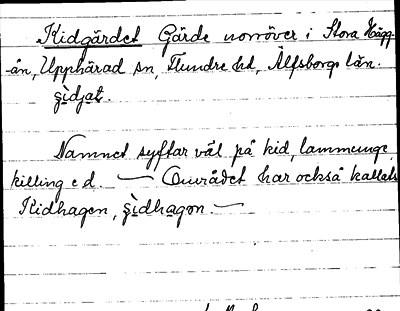 Kidgärdet Gärde norröver i Stora Hägg-
ån, Upphärad sn, Flundre hd, Älfsborgs län.
şìdjat.
Namnet syftar väl på kid, lammunge,
killing e d. — Området har också kallats
Kidhagen, şìdhagon. —